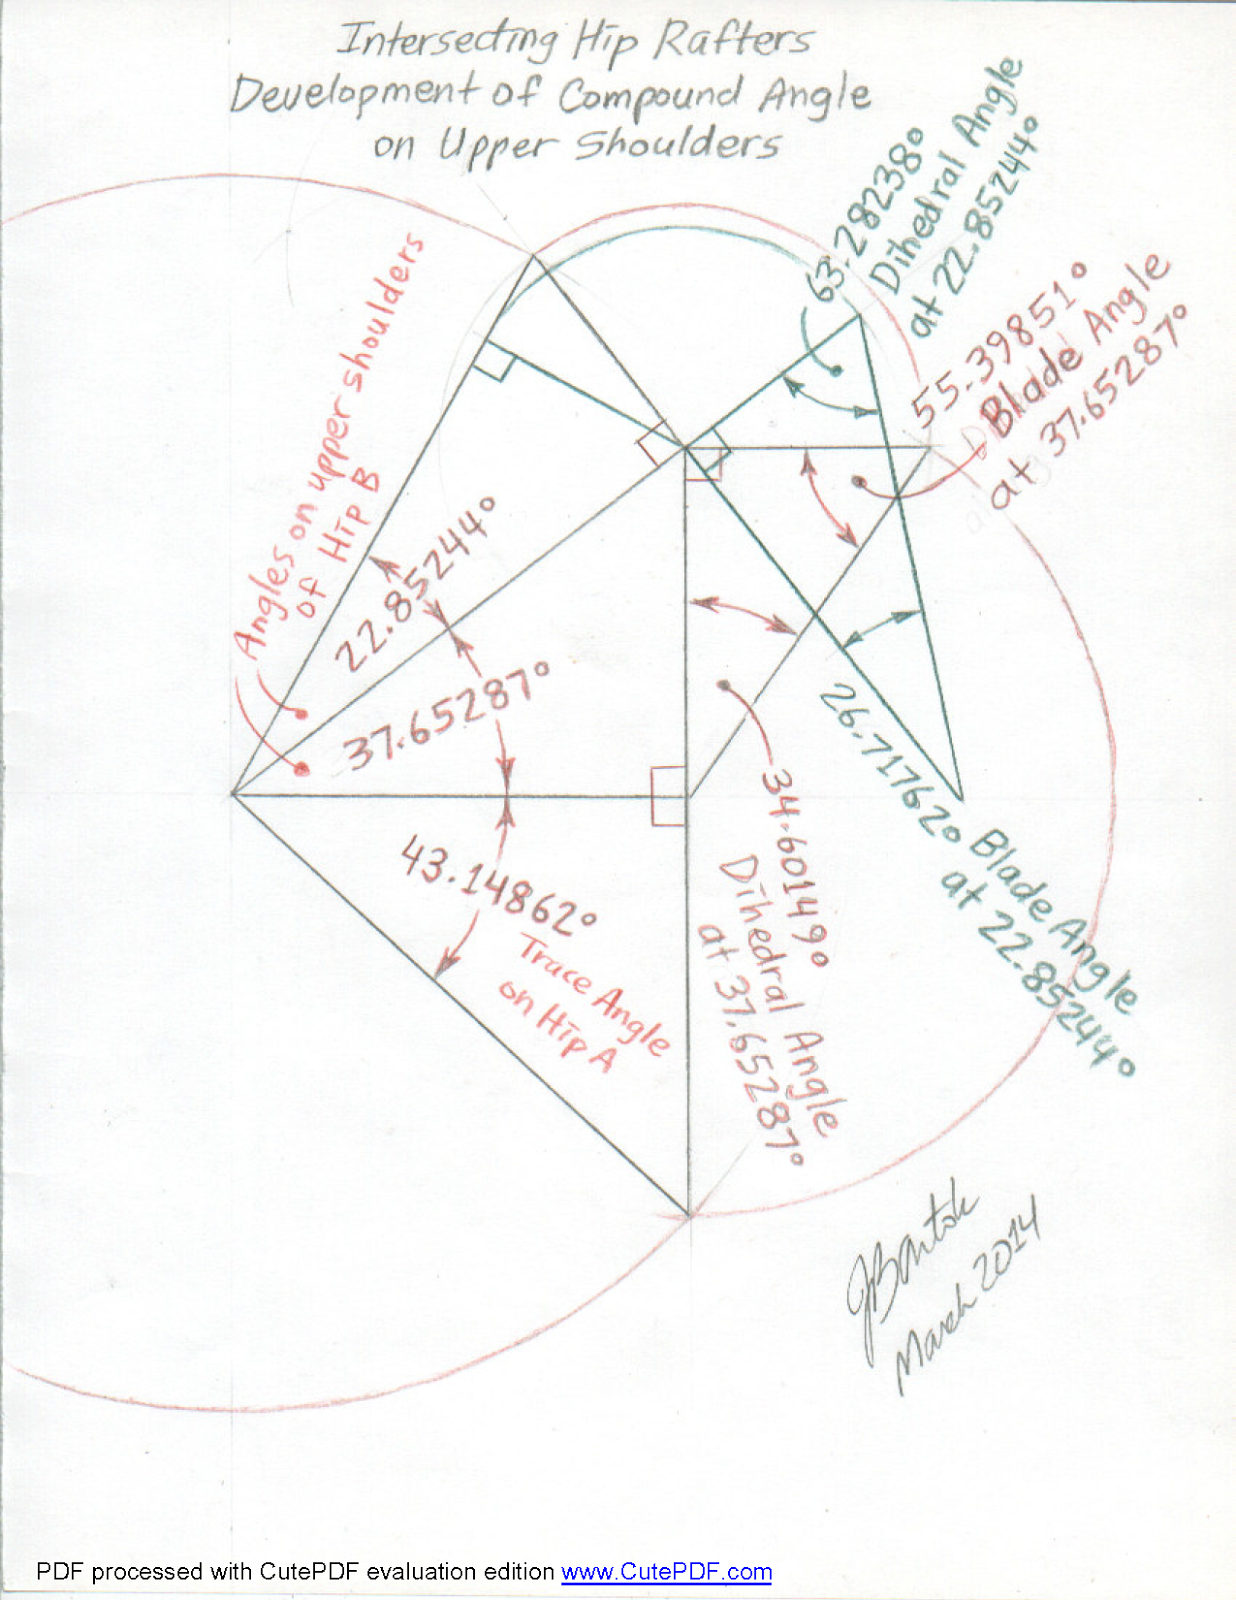 Intersecting Hip Rafters
Development of Compound Angle
on Upper Shoulders
63.28238°
Dihedral Angle
at 22.85244°
55.39851°
Blade Angle
at 37.65287°
Angles on upper shoulders
of Hip B
22.85244°
37.65287°
43.14862°
Trace Angle
on Hip A
34.60149°
Dihedral Angle
at 37.65287°
26.71762°
Blade Angle
at 22.85244°
JBartok
March 2014
PDF processed with CutePDF evaluation edition www.CutePDF.com